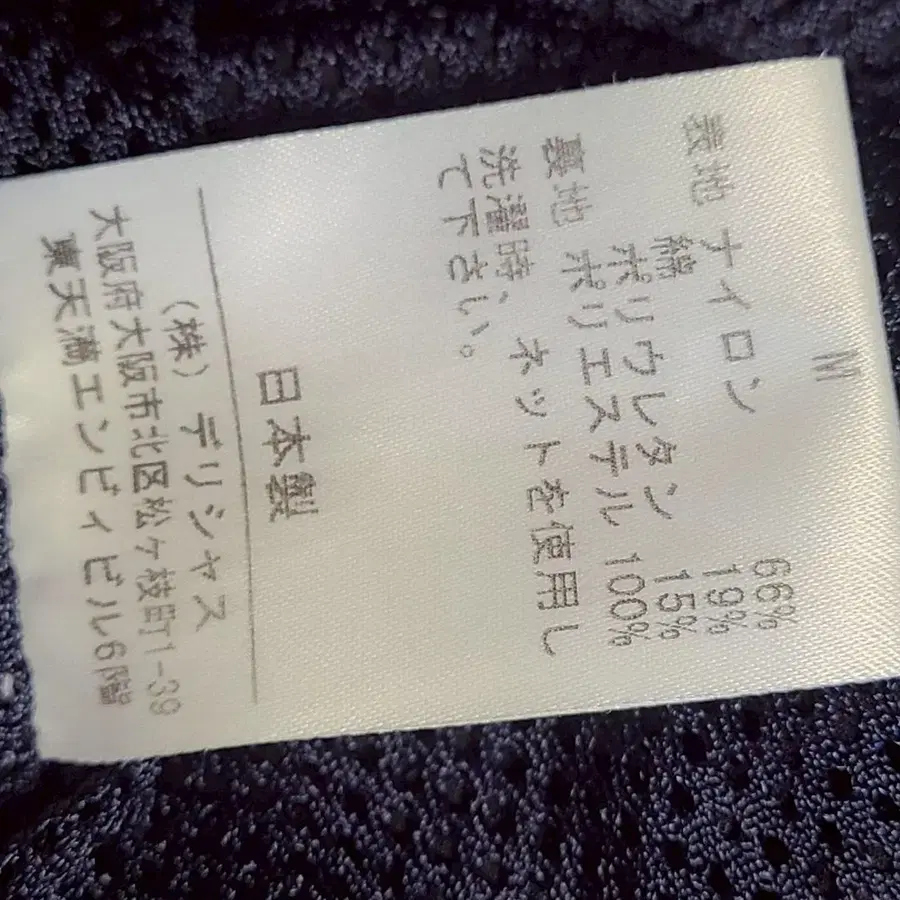 M
表地 ナイロン 66%
綿 19%
ポリウレタン 15%
裏地 ポリエステル 100%
洗濯時、ネットを使用し
て下さい。
日本製
(株) デリシャス
大阪府大阪市北区松ヶ枝町1-39
東天満エンビィビル6階